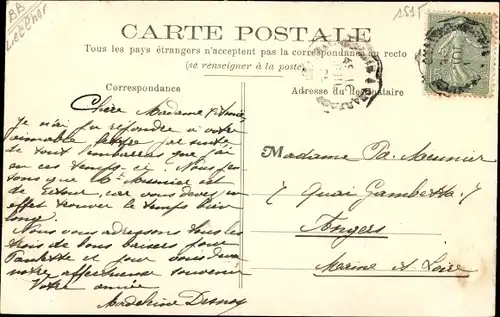 BB
Loir et Cher
1515
CARTE POSTALE
Tous les pays étrangers n'acceptent pas la correspondance au recto
(se renseigner à la poste)
Correspondance
Adresse du destinataire
Chère Madame et Amie,
Je n'ai pu répondre à votre
aimable lettre par suite
de tout l'embarras que j'ai
eu ces temps-ci. Nous pen
sons que Mr Meunier est
de retour, car vous devez en
effet trouver le temps bien
long.
Nous vous adressons tous les
trois de bons baisers pour
Paulette et pour vous deux
notre affectueux souvenir
Votre amie
Madeleine
Madame Pa. Meunier
7 Quai Gambetta 7
Angers
Maine et Loire